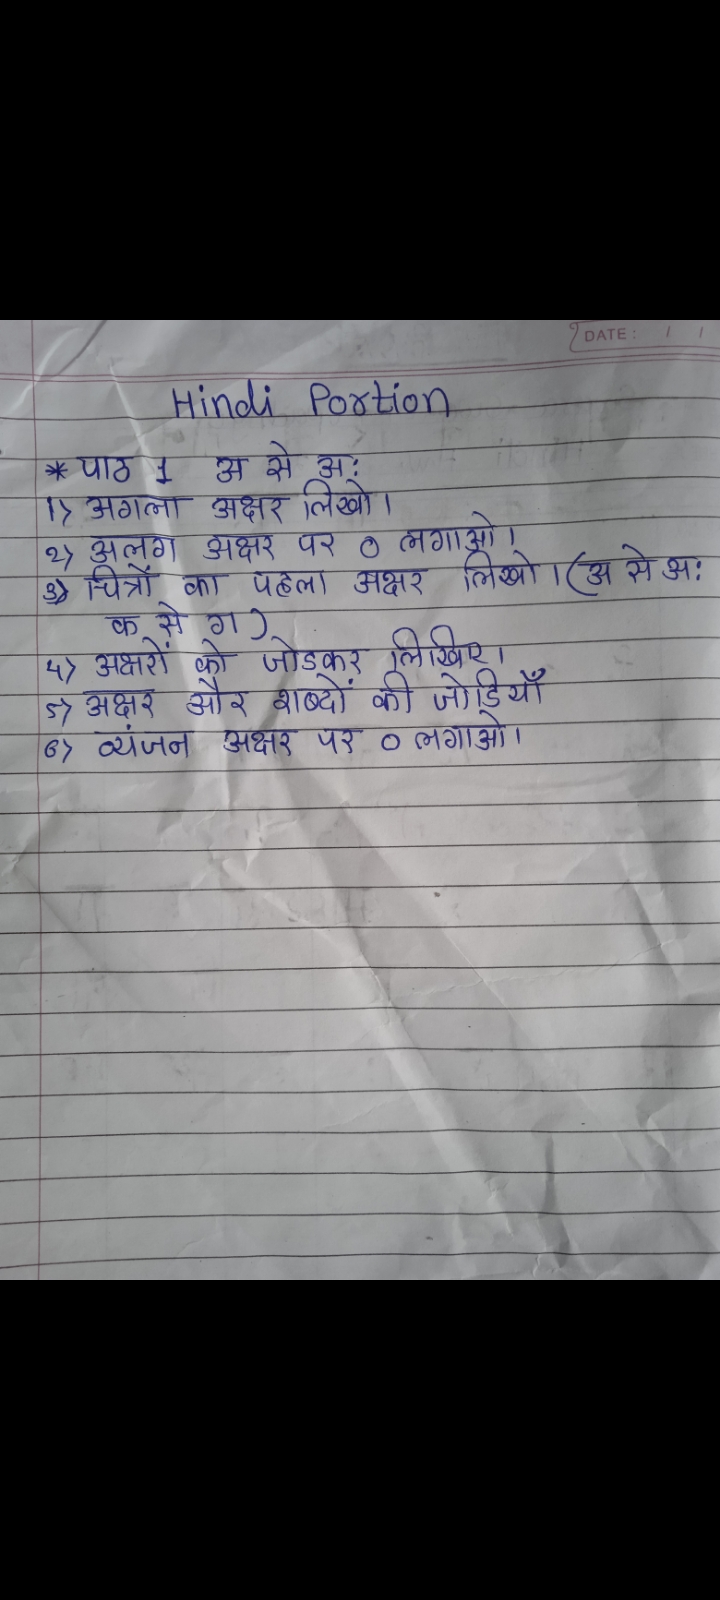 DATE: / /
Hindi Portion
* पाठ 1 अ से अः
1) अगला अक्षर लिखो।
2) अलग अक्षर पर O लगाओ।
3) चित्रों का पहला अक्षर लिखो। (अ से अः
क से ग)
4) अक्षरों को जोडकर लिखिए।
5) अक्षर और शब्दों की जोडियाँ
6) व्यंजन अक्षर पर O लगाओ।